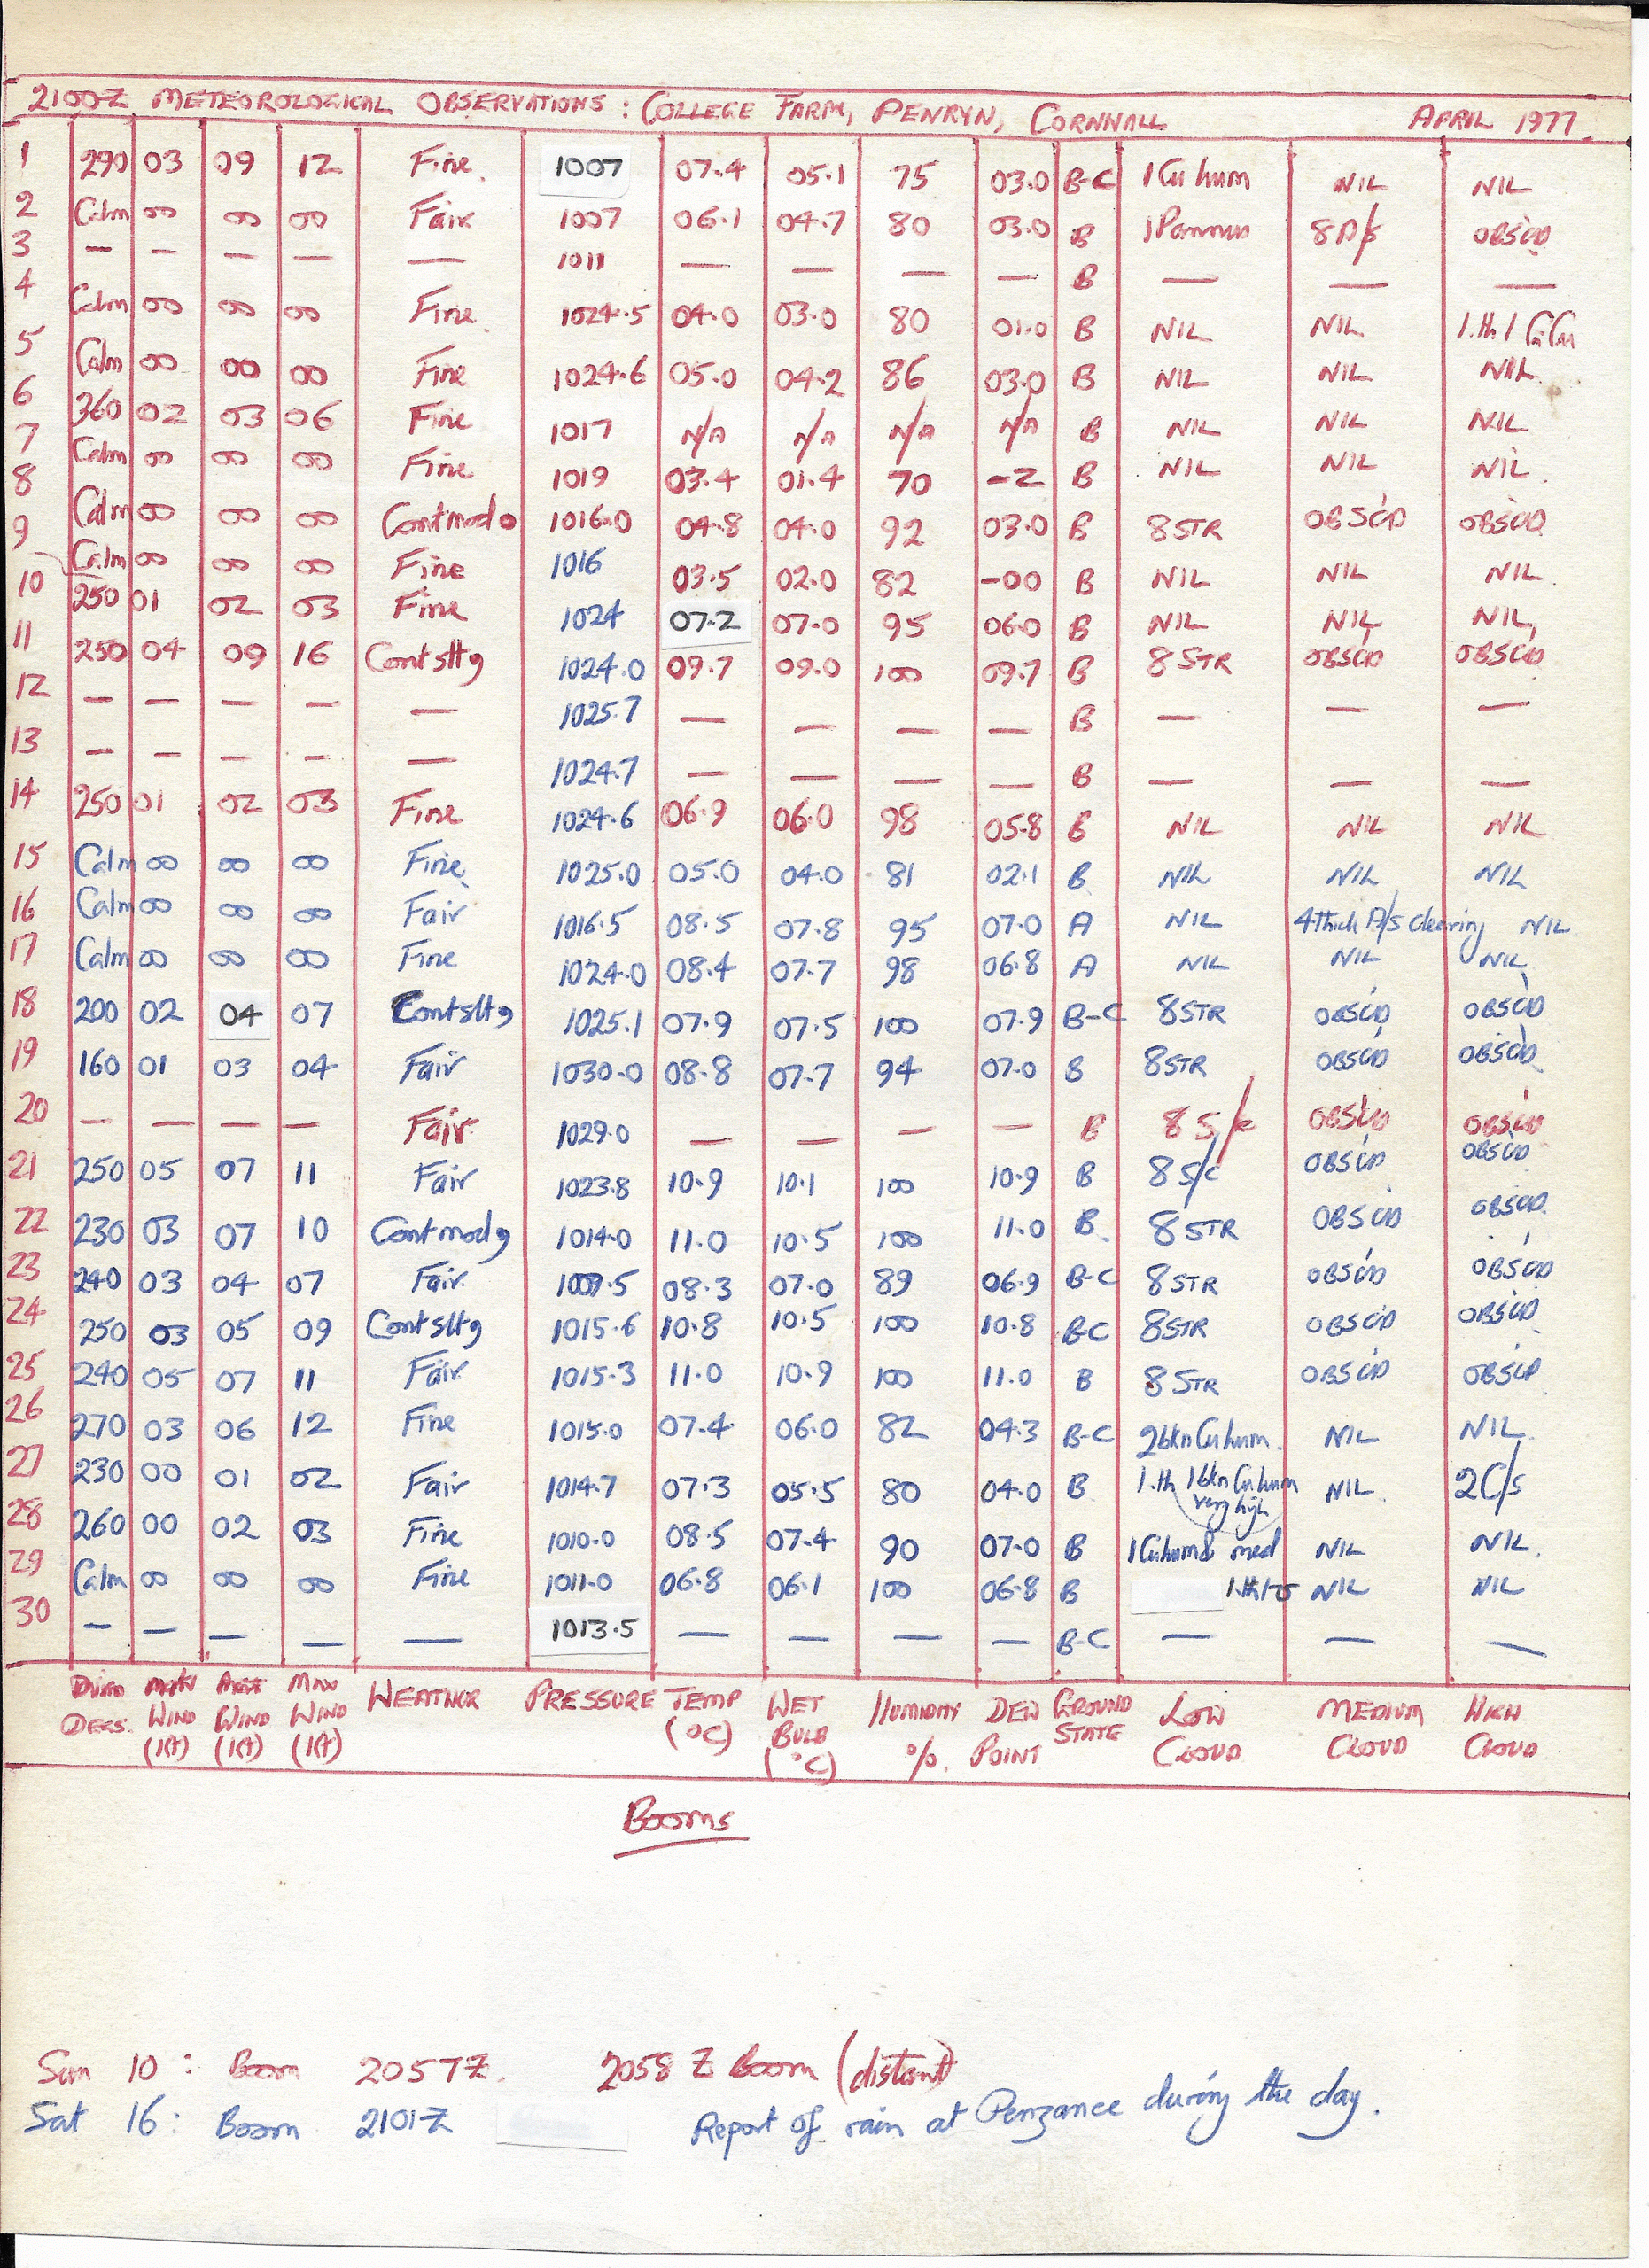 2100Z METEOROLOGICAL OBSERVATIONS : COLLEGE FARM, PENRYN, CORNWALL APRIL 1977
1 290 03 09 12 Fine. 1007 07.4 05.1 75 03.0 B-C 1 Cu hum NIL NIL
2 Calm 00 00 00 Fair 1007 06.1 04.7 80 03.0 B 1 Pannus 8 A/s OBSC'D
3 — — — — — 1011 — — — — B — — —
4 Calm 00 00 00 Fine. 1024.5 04.0 03.0 80 01.0 B NIL NIL 1.th 1 CiCu
5 Calm 00 00 00 Fine 1024.6 05.0 04.2 86 03.0 B NIL NIL NIL
6 360 02 03 06 Fine 1017 N/A N/A N/A N/A B NIL NIL NIL
7 Calm 00 00 00 Fine 1019 03.4 01.4 70 -2 B NIL NIL NIL.
8 Calm 00 00 00 Contmod 1016.0 04.8 04.0 92 03.0 B 8 STR OBSC'D OBSC'D
9 Calm 00 00 00 Fine 1016 03.5 02.0 82 -00 B NIL NIL NIL.
10 250 01 02 03 Fine 1024 07.2 07.0 95 06.0 B NIL NIL NIL,
11 250 04 09 16 Contsltg 1024.0 09.7 09.0 100 09.7 B 8 STR OBSC'D OBSC'D
12 — — — — — 1025.7 — — — — B — — —
13 — — — — — 1024.7 — — — — B — — —
14 250 01 02 03 Fine 1024.6 06.9 06.0 98 05.8 B NIL NIL NIL
15 Calm 00 00 00 Fine. 1025.0 05.0 04.0 81 02.1 B NIL NIL NIL
16 Calm 00 00 00 Fair 1016.5 08.5 07.8 95 07.0 A NIL 4 thick A/s clearing NIL
17 Calm 00 00 00 Fine 1024.0 08.4 07.7 98 06.8 A NIL NIL NIL
18 200 02 04 07 Contsltg 1025.1 07.9 07.5 100 07.9 B-C 8 STR OBSC'D OBSC'D
19 160 01 03 04 Fair 1030.0 08.8 07.7 94 07.0 B 8 STR OBSC'D OBSC'D
20 — — — — Fair 1029.0 — — — — B 8 S/c OBSC'D OBSC'D
21 250 05 07 11 Fair 1023.8 10.9 10.1 100 10.9 B 8 S/c OBSC'D OBSC'D
22 230 03 07 10 Contmodg 1014.0 11.0 10.5 100 11.0 B. 8 STR OBSC'D OBSC'D.
23 240 03 04 07 Fair. 1009.5 08.3 07.0 89 06.9 B-C 8 STR OBSC'D OBSC'D
24 250 03 05 09 Contsltg 1015.6 10.8 10.5 100 10.8 B-C 8 STR OBSC'D OBSC'D
25 240 05 07 11 Fair. 1015.3 11.0 10.9 100 11.0 B 8 STR OBSC'D OBSC'D
26 270 03 06 12 Fine 1015.0 07.4 06.0 82 04.3 B-C 2bkn Cu hum. NIL NIL.
27 230 00 01 02 Fair 1014.7 07.3 05.5 80 04.0 B 1.th 1bkn Cu hum very high NIL. 2 C/s
28 260 00 02 03 Fine 1010.0 08.5 07.4 90 07.0 B 1 Cu hum & med NIL NIL.
29 Calm 00 00 00 Fine 1011.0 06.8 06.1 100 06.8 B NIL NIL
30 — — — — — 1013.5 — — — — B-C — — —
WIND WIND MAX WIND WEATHER PRESSURE TEMP WET BULB HUMIDITY DEW POINT GROUND STATE LOW CLOUD MEDIUM CLOUD HIGH CLOUD
(Kt) (Kt) (Kt) (°C) (°C) %.
Booms
Sun 10 : Boom 2057Z. 2058 Z Boom (distant)
Sat 16 : Boom 2101Z Report of rain at Penzance during the day.